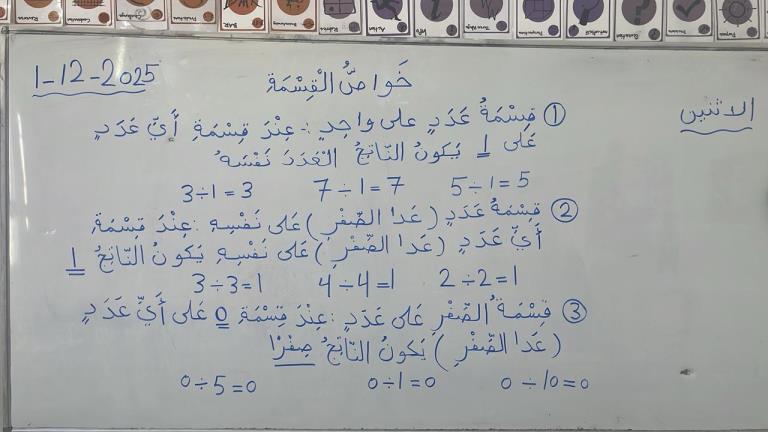 الاثنين
1-12-2025
خَواصُّ الْقِسْمَةِ
① قِسْمَةُ عَدَدٍ على واحِدٍ :- عِنْدَ قِسْمَةِ أَيِّ عَدَدٍ
عَلى 1 يَكونُ النّاتِجُ الْعَدَدَ نَفْسَهُ
5÷1=5 7÷1=7 3÷1=3
② قِسْمَةُ عَدَدٍ (عَدا الصِّفْرِ) عَلى نَفْسِهِ :عِنْدَ قِسْمَةِ
أَيِّ عَدَدٍ (عَدا الصِّفْرِ) عَلى نَفْسِهِ يَكونُ النّاتِجُ 1
2÷2=1 4÷4=1 3÷3=1
③ قِسْمَةُ الصِّفْرِ عَلى عَدَدٍ :عِنْدَ قِسْمَةِ 0 عَلى أَيِّ عَدَدٍ
(عَدا الصِّفْرِ) يَكونُ النّاتِجُ صِفْرًا
0÷10=0 0÷1=0 0÷5=0